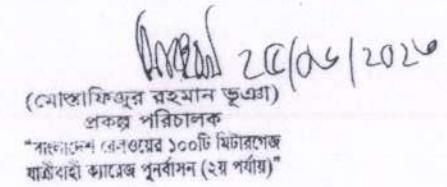 ২৫/০৬/২০২৩
(মোস্তাফিজুর রহমান ভূঞা)
প্রকল্প পরিচালক
"বাংলাদেশ রেলওয়ের ১০০টি মিটারগেজ
যাত্রীবাহী ক্যারেজ পুনর্বাসন (২য় পর্যায়)"